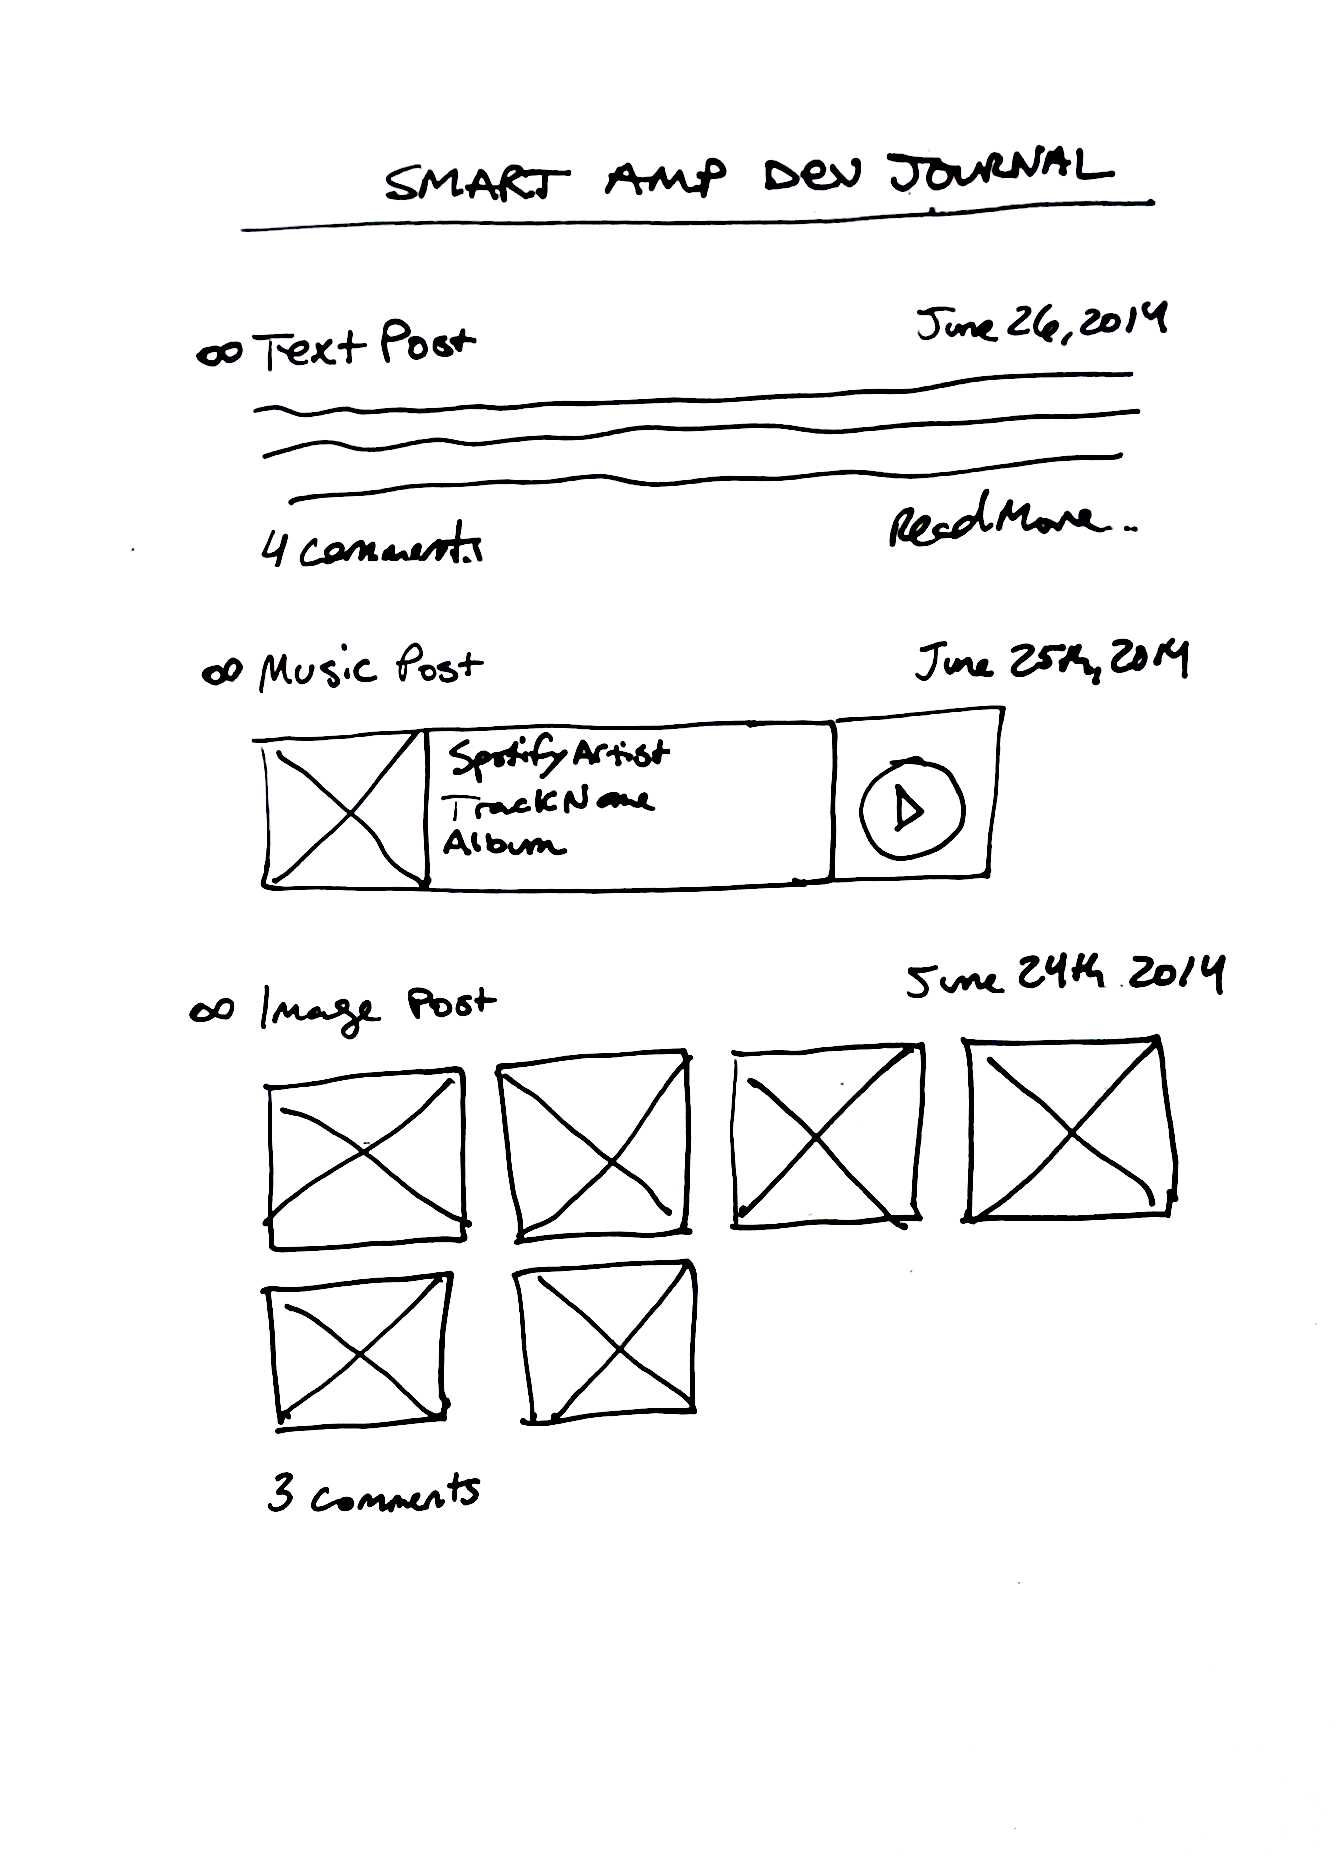 SMART AMP DEV JOURNAL
∞ Text Post June 26, 2014
4 comments Read More..
∞ Music Post June 25th, 2014
Spotify Artist
Track Name
Album
∞ Image Post June 24th 2014
3 comments